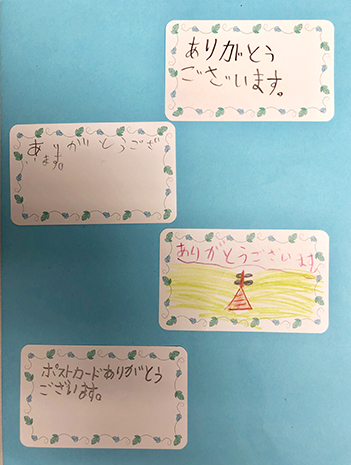 ありがとう
ございます。
ありがとうござ
います。
ありがとうございます
ポストカードありがとう
ございます。